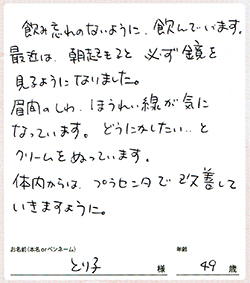 飲み忘れのないように、飲んでいます。
最近は、朝起きると 必ず鏡を
見るようになりました。
眉間のしわ、ほうれい線が気に
なっています。どうにかしたい‥と
クリームをぬっています。
体内からは、プラセンタで改善して
いきますように。
お名前(本名orペンネーム) 年齢
とり子 様 49 歳